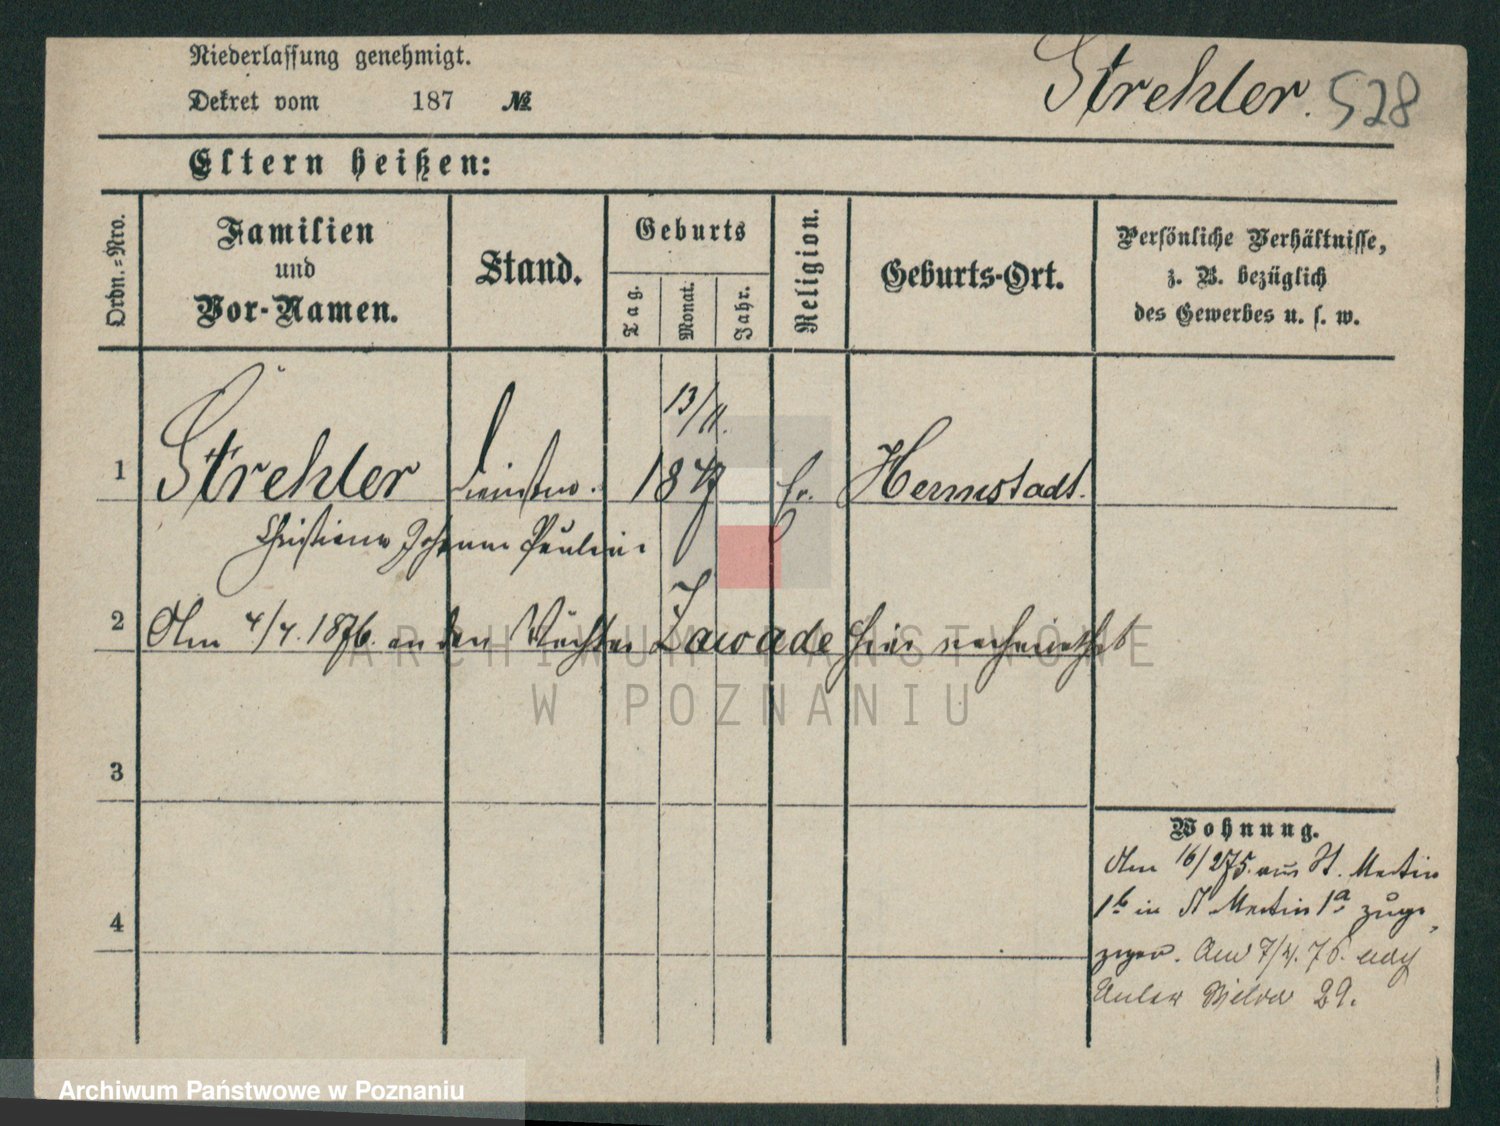 Niederlassung genehmigt.
Dekret vom 187 №
Strehler. 528
Eltern heißen:
Ordn.-Nro.
Familien
und
Vor-Namen.
Stand.
Geburts
Tag.
Monat.
Jahr.
Religion.
Geburts-Ort.
Persönliche Verhältnisse,
z. B. bezüglich
des Gewerbes u. s. w.
13/11.
1 Strehler 1847 Herrnstadt.
Christiane Johanne Pauline
2 Am 4/4. 1876. an den Wächter Zawade hier verheirathet
ARCHIWUM PAŃSTWOWE
W POZNANIU
3
Wohnung.
Am 16/2 75. aus St. Martin
1b in St Martin 1a zuge-
4
zogen. Am 7/4. 76. nach
Unter Wilda 29.
Archiwum Państwowe w Poznaniu